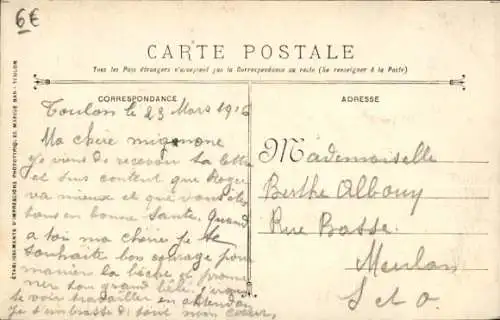 6€
CARTE POSTALE
Tous les Pays étrangers n'acceptent pas la Correspondance au recto (Se renseigner à la Poste)
CORRESPONDANCE
Toulon le 23 Mars 1916
Ma chère mignonne
Je viens de recevoir ta lettre
et suis content que Roger
va mieux et que vous êtes
tous en bonne Santé. Quand
a toi ma chère je te
souhaite bon courage pour
manier la bêche et
ner ton grand
te voir travailler en attendant
Je t'embrasse de tout mon cœur,
ADRESSE
Mademoiselle
Berthe Albouy
Rue Basse.
Meulan
S et O.